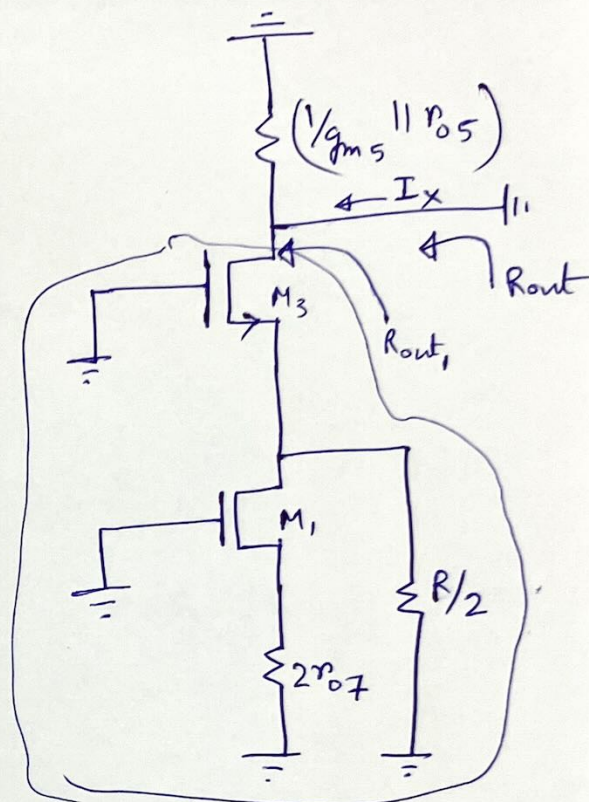 (1/gm5 || ro5)
Ix
Rout
M3
Rout,
M1
R/2
2ro7